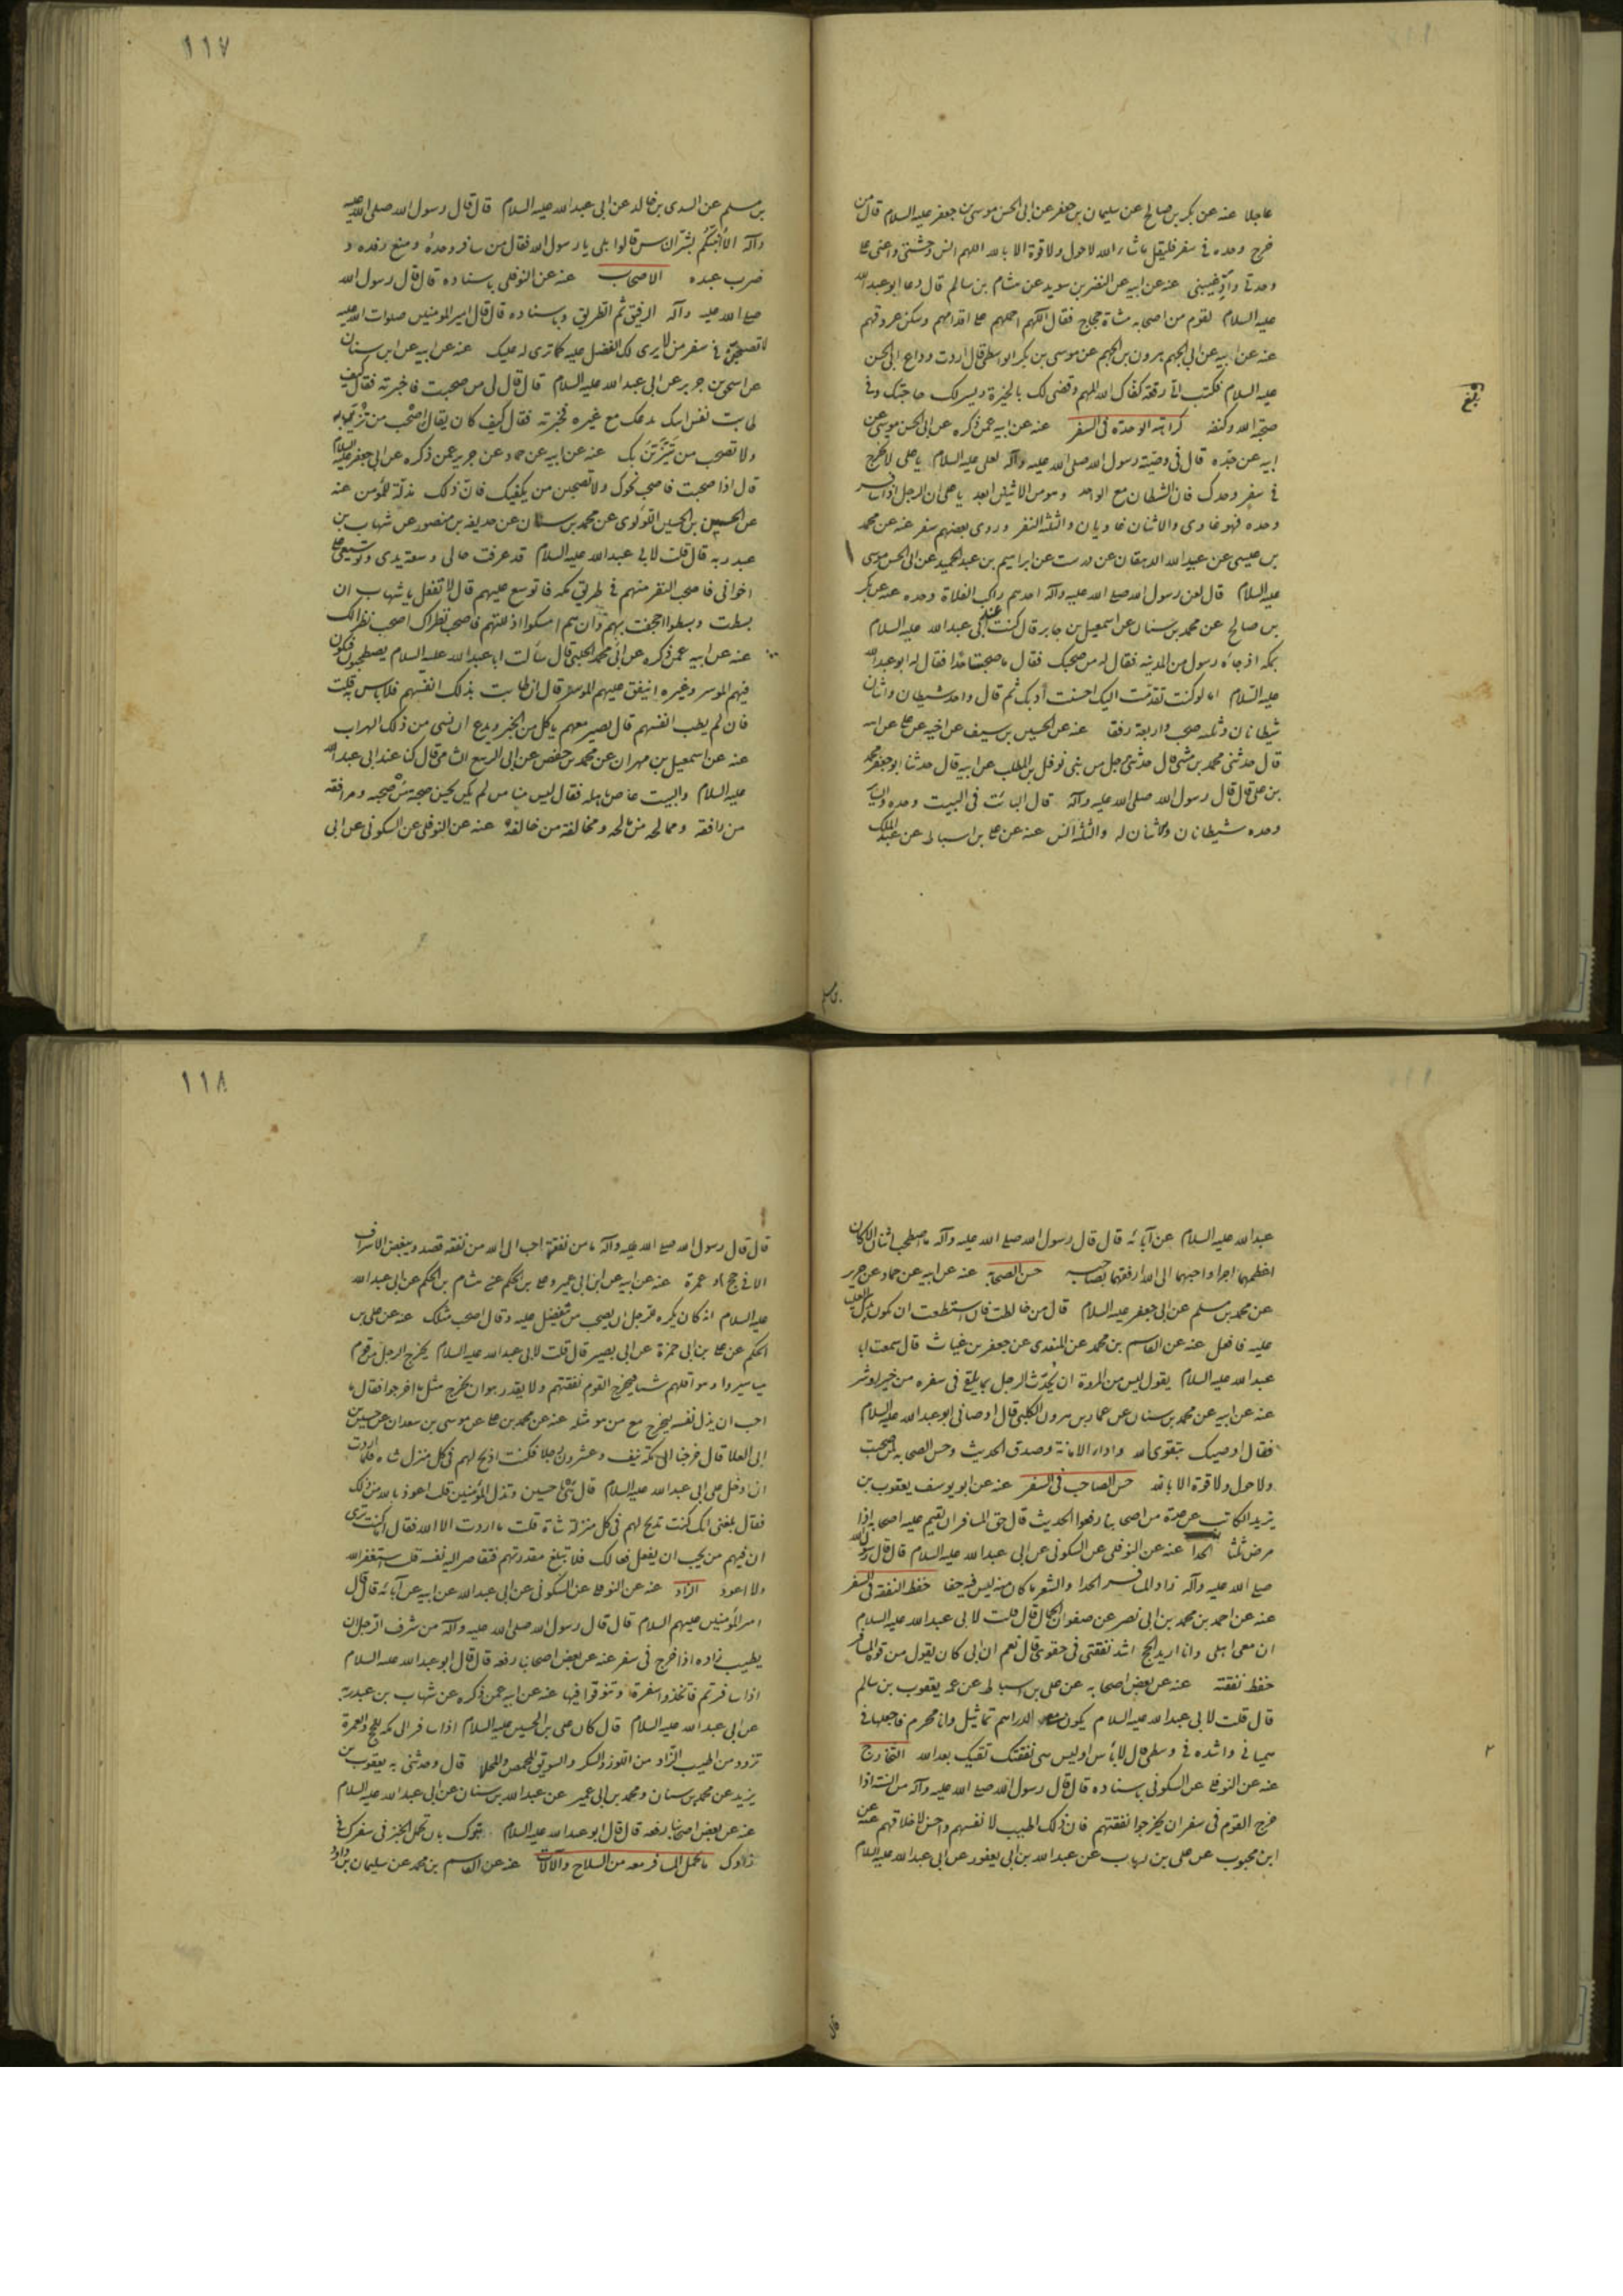 ١١٧
عاجلا عنه عن بكر بن صالح عن سليمان بن جعفر عن ابى الحسن موسى بن جعفر عليه السلام قال من
خرج وحده فى سفر فليقل ما شاء الله لا حول ولا قوة الا بالله اللهم انس وحشتى واعنى على
وحدتى وأدّ غيبتى عنه عن ابيه عن النضر بن سويد عن هشام بن سالم قال دعا ابو عبد الله
عليه السلام لقوم من اصحابه مشاة حجاج فقال اللهم احملهم على اقدامهم وسكن عروقهم
عنه عن ابيه عن ابى الجهم هرون بن الجهم عن موسى بن بكر الواسطى قال اردت وداع ابى الحسن
عليه السلام فكتب الىّ رقعة كفاك الله المهم وقضى لك بالخيرة ويسر لك حاجتك وفى
صحبة الله وكنفه كراهة الوحدة فى السفر عنه عن ابيه عمن ذكره عن ابى الحسن موسى عن
ابيه عن جدّه قال فى وصيّة رسول الله صلى الله عليه وآله لعلى عليه السلام يا على لا تخرج
فى سفر وحدك فان الشيطان مع الواحد وهو من الاثنين ابعد يا على ان الرجل اذا سافر
وحده فهو غاوى والاثنان غاويان والثلثة النفر وروى بعضهم سفر عنه عن محمد
بن عيسى عن عبيد الله الدهقان عن درست عن ابراهيم بن عبد الحميد عن ابى الحسن موسى
عليه السلام قال لعن رسول الله صلى الله عليه وآله احدهم راكب الفلاة وحده عنه عن بكر
بن صالح عن محمد بن سنان عن اسمعيل بن جابر قال كنت عند ابى عبد الله عليه السلام
بمكة اذ جاءه رسول من المدينة فقال له من صحبك فقال ما صحبت احدا فقال له ابو عبد الله
عليه السلام اما لو كنت تقدّمت اليك لاحسنت أدبك ثم قال واحد شيطان واثنان
شيطانان وثلثة صحب واربعة رفقا عنه عن الحسين بن سيف عن اخيه عن على عن ابيه
قال حدثنى محمد بن مثنى قال حدّثنى رجل من بنى نوفل بن المطلب عن ابيه قال حدثنا ابو جعفر محمد
بن على قال قال رسول الله صلى الله عليه وآله قال البائت فى البيت وحده والسائر
وحده شيطانان والاثنان لمه والثلثة انس عنه عن على بن اسباط عن عبد الملك
بن مسلم عن السندى بن خالد عن ابى عبد الله عليه السلام قال قال رسول الله صلى الله عليه
وآله ألا أنبئكم بشرّ الناس قالوا بلى يا رسول الله فقال من سافر وحده ومنع رفده و
ضرب عبده الاصحاب عنه عن النوفلى باسناده قال قال رسول الله
صلى الله عليه وآله الرفيق ثم الطريق وباسناده قال قال امير المؤمنين صلوات الله عليه
لا تصحبنّ فى سفر من لا يرى لك الفضل عليه كما ترى له عليك عنه عن ابيه عن ابن سنان
عن اسحق بن جرير عن ابى عبد الله عليه السلام قال قال لى من صحبت فاخبرته فقال كيف
طابت نفس ابيك يدعك مع غيره فخبّرته فقال كيف كان يقال اصحب من تتزيّن به
ولا تصحب من يَتَزَيَّنَ بك عنه عن ابيه عن حماد عن حريز عمن ذكره عن ابى جعفر عليه السلام
قال اذا صحبت فاصحب نحوك ولا تصحبن من يكفيك فانّ ذلك مذلّة للمؤمن عنه
عن الحسين بن الحسين اللؤلوى عن محمد بن سنان عن حذيفة بن منصور عن شهاب بن
عبد ربه قال قلت لابى عبد الله عليه السلام قد عرفت حالى وسعة يدى وتوسيعى على
اخوانى فاصحب النفر منهم فى طريق مكة فاتوسع عليهم قال لا تفعل يا شهاب ان
بسطت وبسطوا اجحفت بهم وان هم امسكوا اذللتهم فاصحب نظراك اصحب نظراك
عنه عن ابيه عمن ذكره عن ابى محمد الحلبى قال سألت ابا عبد الله عليه السلام يصطحبون فيكون
فيهم الموسر وغيره اينفق عليهم الموسر قال ان طابت بذلك انفسهم فلا باس به قلت
فان لم يطب انفسهم قال يصير معهم ياكل من الخبز ويدع ان نسى من ذلك الهرات
عنه عن اسمعيل بن مهران عن محمد بن حفص عن ابى الربيع الشامى قال كنا عند ابى عبد الله
عليه السلام والبيت غاص باهله فقال ليس منا من لم يكن يحسن صحبة من صحبه ومرافقة
من رافقه وممالحة من مالحه ومخالقة من خالقه عنه عن النوفلى عن السكونى عن ابى
١١٨
عبد الله عليه السلام عن آبائه قال قال رسول الله صلى الله عليه وآله ما اصطحب اثنان الا كان
اعظمهما اجرا واحبهما الى الله ارفقهما بصاحبه حسن الصحابة عنه عن ابيه عن حماد عن حريز
عن محمد بن مسلم عن ابى جعفر عليه السلام قال من خالطت فان استطعت ان تكون يدك العليا
عليه فافعل عنه عن القاسم بن محمد عن المنقرى عن جعفر بن غياث قال سمعت ابا
عبد الله عليه السلام يقول ليس من المروة ان يحدّث الرجل بما يلقى فى سفره من خير او شر
عنه عن ابيه عن محمد بن سنان عن عمار بن مروان الكلبى قال اوصانى ابو عبد الله عليه السلام
فقال اوصيك بتقوى الله واداء الامانة وصدق الحديث وحسن الصحابة لمن صحبت
ولا حول ولا قوة الا بالله حسن الصاحب فى السفر عنه عن ابو يوسف يعقوب بن
يزيد الكاتب عن عدة من اصحابنا رفعوا الحديث قال حق المسافر ان يقيم عليه اصحابه اذا
مرض ثلثا الحدا عنه عن النوفلى عن السكونى عن ابى عبد الله عليه السلام قال قال رسول الله
صلى الله عليه وآله زاد المسافر الحدا والشعر ما كان منه ليس فيه جفا حفظ النفقة فى السفر
عنه عن احمد بن محمد بن ابى نصر عن صفوان الجمال قال قلت لابى عبد الله عليه السلام
ان معى اهلى وانا اريد الحج اشد نفقتى فى حقوى قال نعم ان ابى كان يقول من قوة المسافر
حفظ نفقته عنه عن بعض اصحابه عن على بن اسباط عن عمه يعقوب بن سالم
قال قلت لابى عبد الله عليه السلام يكون معى الدراهم تماثيل وانا محرم فاجعلها فى
هميانى واشده فى وسطى قال لا بأس اوليس هى نفقتك تقيك بعد الله التخارج
عنه عن النوفلى عن السكونى باسناده قال قال رسول الله صلى الله عليه وآله من السنة اذا
خرج القوم فى سفر ان يخرجوا نفقتهم فان ذلك اطيب لانفسهم واحسن لاخلاقهم عنه عن
ابن محبوب عن على بن رياب عن عبد الله بن ابى يعفور عن ابى عبد الله عليه السلام
قال قال رسول الله صلى الله عليه وآله ما من نفقة احب الى الله من نفقة قصد ويبغض الاسراف
الا فى حج او عمرة عنه عن ابيه عن ابن ابى عمير وعلى بن الحكم عن هشام بن الحكم عن ابى عبد الله
عليه السلام انه كان يكره للرجل ان يصحب من يتفضل عليه وقال اصحب مثلك عنه عن على بن
الحكم عن على بن ابى حمزة عن ابى بصير قال قلت لابى عبد الله عليه السلام يخرج الرجل مع قوم
مياسير وهو اقلهم شيئا فيخرج القوم نفقتهم ولا يقدر هو ان يخرج مثل ما اخرجوا فقال ما
احب ان يذل نفسه يخرج مع من هو مثله عنه عن محمد بن على عن موسى بن سعدان عن حسين بن
ابى العلا قال خرجنا الى مكة نيف وعشرون رجلا فكنت اذبح لهم فى كل منزل شاة فلما اردت
ان ادخل على ابى عبد الله عليه السلام قال لى يا حسين وتذل المؤمنين قلت اعوذ بالله من ذلك
فقال بلغنى انك كنت تذبح لهم فى كل منزلة شاة قلت ما اردت الا الله فقال اما كنت ترى
ان فيهم من يحب ان يفعل فعالك فلا تبلغ مقدرتهم فتقاصر اليه نفسه قلت استغفر الله
ولا اعود الزاد عنه عن النوفلى عن السكونى عن ابى عبد الله عن ابيه عن آبائه قال قال
امير المؤمنين عليهم السلام قال قال رسول الله صلى الله عليه وآله من شرف الرجل ان
يطيب زاده اذا خرج فى سفر عنه عن بعض اصحابنا رفعه قال قال ابو عبد الله عليه السلام
اذا سافرتم فاتخذوا سفرة وتنوقوا فيها عنه عن ابيه عمن ذكره عن شهاب بن عبد ربه
عن ابى عبد الله عليه السلام قال كان على بن الحسين عليه السلام اذا سافر الى مكة للحج والعمرة
تزود من اطيب الزاد من اللوز والسكر والسويق المحمص والمحلا قال وحدثنى به يعقوب بن
يزيد عن محمد بن سنان ومحمد بن ابى عمير عن عبد الله بن سنان عن ابى عبد الله عليه السلام
عنه عن بعض اصحابنا رفعه قال قال ابو عبد الله عليه السلام تبرك بان تحمل الخبز فى سفرك فى
زادك ما يحمل المسافر معه من السلاح والآلات عنه عن القاسم بن محمد عن سليمان بن داود